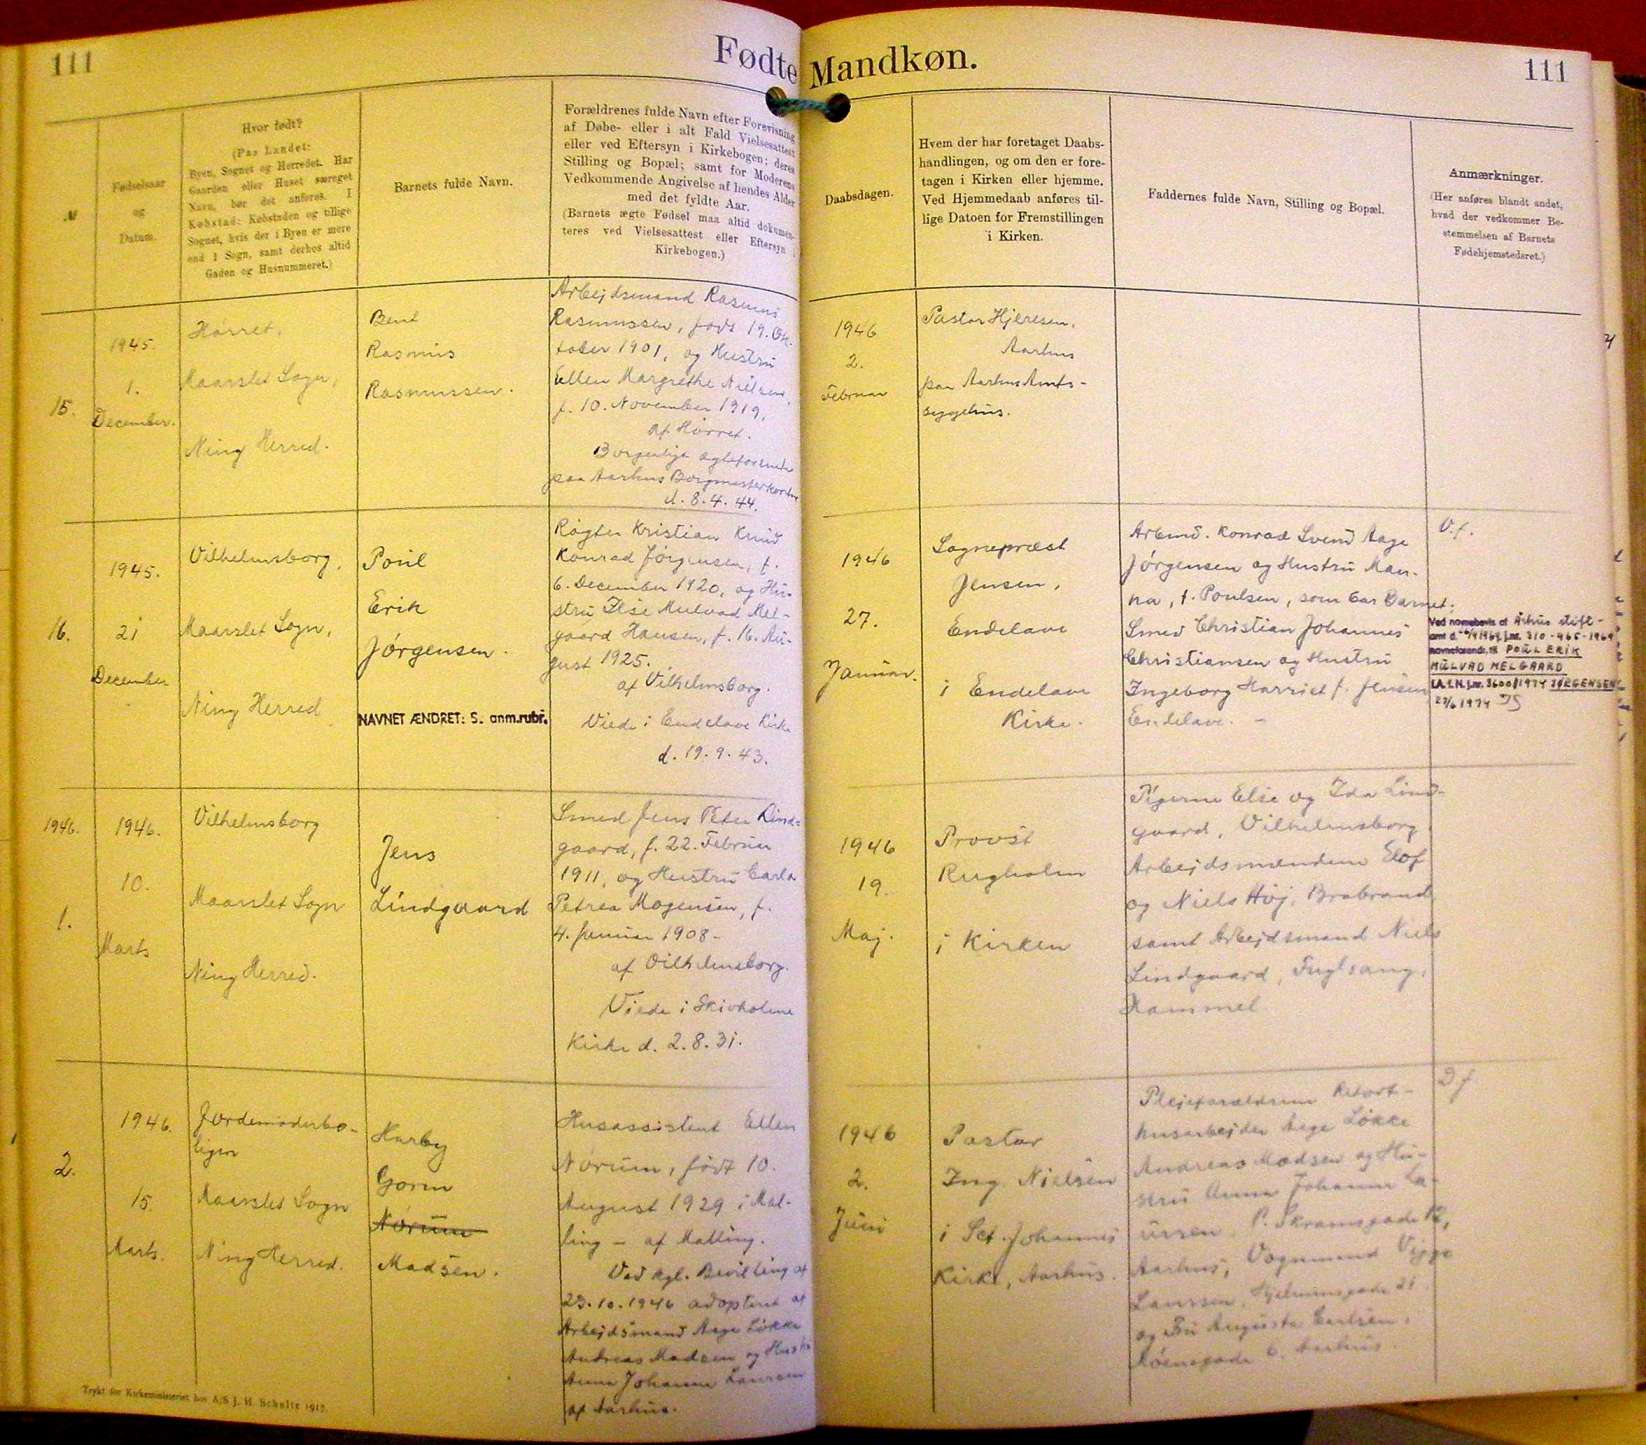 111
Fødte
Mandkøn.
111
№
Fødselsaar
og
Datum.
Hvor født?
(Paa Landet:
Byen, Sognet og Herredet. Har
Gaarden eller Huset særeget
Navn, bør det anføres. I
Købstad: Købstaden og tillige
Sognet, hvis der i Byen er mere
end 1 Sogn, samt derhos altid
Gaden og Husnummeret.)
Barnets fulde Navn.
Forældrenes fulde Navn efter Forevisning
af Døbe- eller i alt Fald Vielsesattest
eller ved Eftersyn i Kirkebogen; deres
Stilling og Bopæl; samt for Moderens
Vedkommende Angivelse af hendes Alder
med det fyldte Aar.
(Barnets ægte Fødsel maa altid dokumen-
teres ved Vielsesattest eller Eftersyn i
Kirkebogen.)
Daabsdagen.
Hvem der har foretaget Daabs-
handlingen, og om den er fore-
tagen i Kirken eller hjemme.
Ved Hjemmedaab anføres til-
lige Datoen for Fremstillingen
i Kirken.
Faddernes fulde Navn, Stilling og Bopæl.
Anmærkninger.
(Her anføres blandt andet,
hvad der vedkommer Be-
stemmelsen af Barnets
Fødehjemstedsret.)
15.
1945.
1.
December.
Hørret,
Maarslet Sogn,
Ning Herred.
Bent
Rasmus
Rasmussen.
Arbejdsmand Rasmus
Rasmussen, født 19. Ok-
tober 1901, og Hustru
Ellen Margrethe Nielsen,
f. 10. November 1919,
af Hørret.
Borgerligt
paa Aarhus Borgmesterkontor
d. 8.4.44.
1946
2.
Februar
Pastor
Aarhus
paa Aarhus Amts-
sygehus.
16.
1945.
21
December
Vilhelmsborg,
Maarslet Sogn,
Ning Herred
Poul
Erik
Jørgensen.
NAVNET ÆNDRET: S. anm.rubr.
Røgter Kristian Knud
Konrad Jørgensen, f.
6. December 1920, og Hu-
stru Else Mulvad Mel-
gaard Hansen, f. 16. Au-
gust 1925.
af Vilhelmsborg.
Viede i Endelave Kirke
d. 19.9.43.
1946
27.
Januar.
Sognepræst
Jensen,
Endelave
i Endelave
Kirke.
Arbmd. Konrad Svend Aage
Jørgensen og Hustru Man-
na, f. Poulsen, som bar Barnet;
Smed Christian Johannes
Christiansen og Hustru
Ingeborg Harriet f. Jensen
Endelave. -
V.f.
Ved navnebevis af Århus stift-
amt d. 1969, j.nr. 310-465-1969
navneforandr. til POUL ERIK
MULVAD MELGAARD
L.A.f.N. j.nr. 3600/1974 JØRGENSEN
27/6 1974 JS
1946.
1.
1946.
10.
Marts
Vilhelmsborg
Maarslet Sogn
Ning Herred.
Jens
Lindgaard
Smed Jens Peter Lind-
gaard, f. 22. Februar
1911, og Hustru Carla
Petrea Mogensen, f.
4. Januar 1908 -
af Vilhelmsborg.
Viede i Skivholme
Kirke d. 2.8.31.
1946
19.
Maj.
Provst
Rugholm
i Kirken
Pigerne Else og Ida Lind-
gaard, Vilhelmsborg,
Arbejdsmændene Elof
og Niels Høj, Brabrand,
samt Arbejdsmand Niels
Lindgaard, Fuglsang,
Hammel
2.
1946.
15.
Marts.
Jordemoderbo-
ligen
Maarslet Sogn
Ning Herred.
Harby
Gorm
Nørum
Madsen.
Husassistent Ellen
Nørum, født 10.
August 1929 i Mal-
ling - af Malling.
Ved kgl. Bevilling af
23.10.1946 adopteret af
Arbejdsmand Aage Løkke
Andreas Madsen og Hustru
Anna Johanne Laursen
af Aarhus.
1946
2.
Juni
Pastor
Ing. Nielsen
i Sct. Johannes
Kirke, Aarhus.
Plejeforældrene Retort-
husarbejder Aage Løkke
Andreas Madsen og Hu-
stru Anna Johanne La-
ursen, P. Skramsgade 12,
Aarhus, Vognmand Viggo
Laursen, Hjelmensgade 21
og Fru Augusta Carlsen,
6, Aarhus.
D f
Trykt for Kirkeministeriet hos A/S J. H. Schultz 1917.